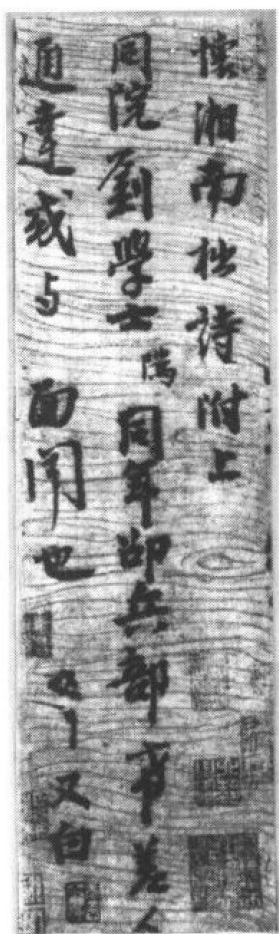 懷湘南拙詩附上
同院劉學士 同年邵兵部 差人
通達或与 面聞也 又白